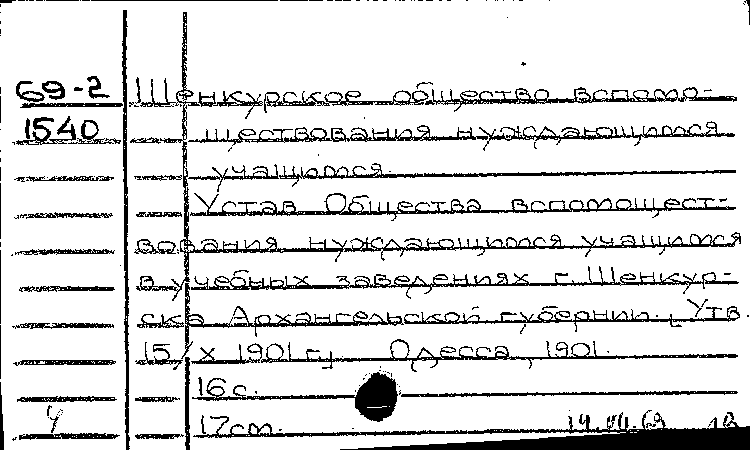 69-2 Шенкурское общество вспомо-
1540 ществования нуждающимся
учащимся.
Устав Общества вспомощест-
вования нуждающимся учащимся
в учебных заведениях г. Шенкур-
ска Архангельской губернии. [Утв.
15/X 1901 г.] Одесса, 1901.
16 с.
17 см.